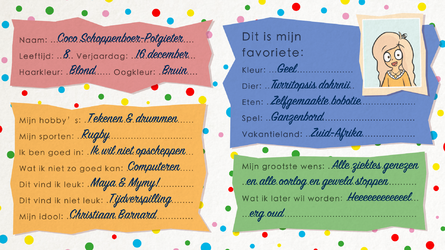 Naam: Coco Schoppenboer-Potgieter
Leeftijd: 8 Verjaardag: 16 december
Haarkleur: Blond Oogkleur: Bruin
Mijn hobby's: Tekenen & drummen
Mijn sporten: Rugby
Ik ben goed in: Ik wil niet opscheppen
Wat ik niet zo goed kan: Computeren
Dit vind ik leuk: Maya & Myny!
Dit vind ik niet leuk: Tijdverspilling
Mijn idool: Christiaan Barnard
Dit is mijn
favoriete:
Kleur: Geel
Dier: Turritopsis dohrnii
Eten: Zelfgemaakte bobotie
Spel: Ganzenbord
Vakantieland: Zuid-Afrika
Mijn grootste wens: Alle ziektes genezen
en alle oorlog en geweld stoppen
Wat ik later wil worden: Heeeeeeeeeeel
erg oud